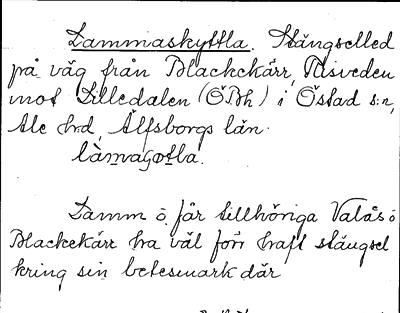 Lammaskyttla. Stängselled
på väg från Blackekärr, Risveden
mot Lilledalen (ÖBh) i Östad s:n,
Ale hrd, Älfsborgs län.
Lamm o. får tillhöriga Valås o
Blackekärr ha väl förr haft stängsel
kring sin betesmark där